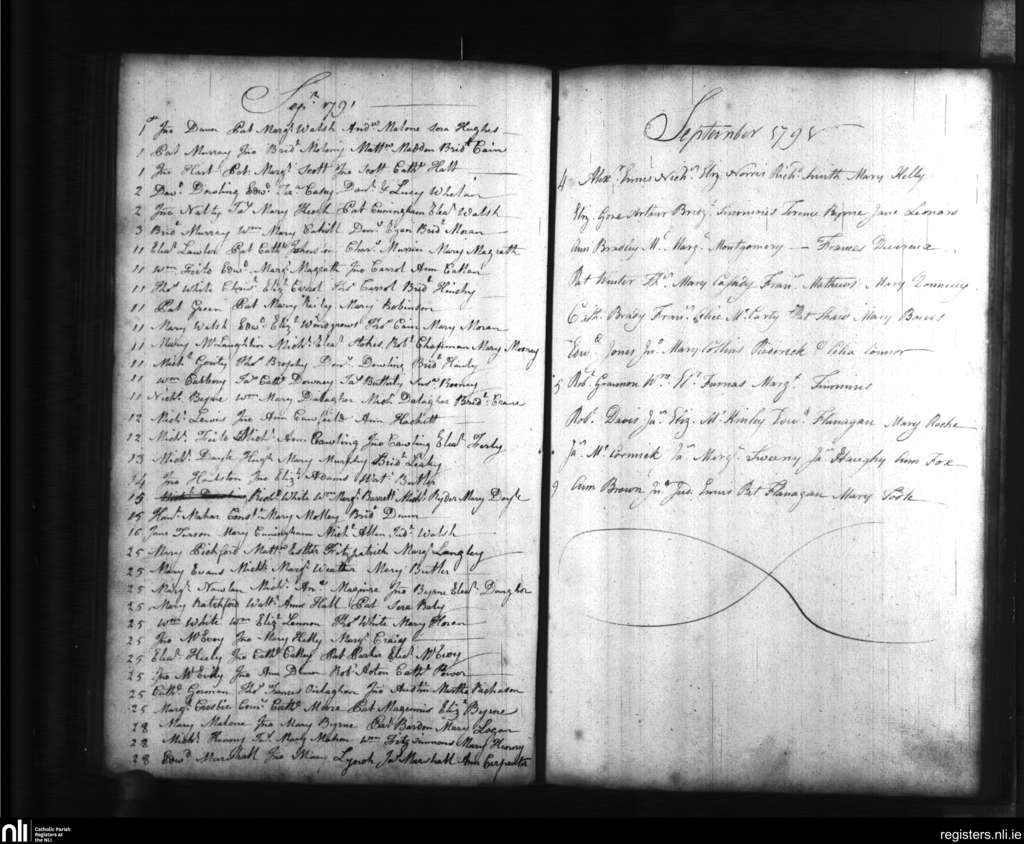 Sepr. 1791
1st Jno Dunn Pat Margt. Walsh Andw. Malone Sera Hughes
1 Pat Murray Jno Brid. Moloney Matthw Madden Brid. Cain
1 Jno Hart Pat. Margt. Scott Jno Scott Cathe. Hall
2 Danl. Dowling Edwd. Casey Danl. & Lucy Whelan
2 Jno Nulty Jas. Mary Heath Pat Cuningham Elea. Walsh
3 Brid Murray Wm Mary Cahill Den. Egan Brid. Moran
11 Elea. Lawler Pat Cathe. Johnson Chars. Warren Mary Magrath
11 Wm Fritz Edwd. Margt. Magrath Jno Carrol Ann Eakan
11 Thos White Christ. Eliz. Everet Thos Carrol Brid. Hinsby
11 Pat Green Pat Mary Reily Mary Robinson
11 Mary Walsh Edwd. Eliz. Winsgrove Thos Cain Mary Moran
11 Mary McLaughlin Mich. Elea. Stokes Robt. Chapman Mary Mooney
11 Mich. Gouty Thos Brophy Den. Dowling Brid. Hanly
11 Wm Cabbony Jas. Cathe. Downey Jas. Butterly Susn. Rooney
11 Nichs. Byrne Wm Mary Dalagher Mich. Dalagher Brid. Crane
12 Mich. Lewis Jno Ann Cawfield Ann Hackett
12 Mich. Mich. Ann Cawling Jno Cawling Elea. Ferly
13 Mich. Doyle Hugh Mary Murphy Brid Leahy
14 Jno Hankston Jno Eliz. Adams Wat. Butler
15 Richd. White Wm Margt. Barrett Mich. Ryder Mary Doyle
15 Hond. Mahar Const. Mary Molloy Brid. Dunn
16 Jane Tuson Mary Cuningham Mich. Allen Judt. Walsh
25 Mary Pickford Matthw Esther Fitzpatrick Margt. Langley
25 Mary Evans Mich. Margt. Weather Mary Butler
25 Margt. Nowlan Mich. Ane. Maguire Jno Byrne Elea. Daugher
25 Mary Ratchford Walt. Anne Hall Pat Sera Baty
25 Wm White Wm Eliz. Lennon Thos White Mary Horan
25 Jno McEvoy Jno Mary Kelly Margt. Craig
25 Elea. Healy Jno Cathe. Oakley Pat Parker Elea. McEvoy
25 Jno McEvily Jno Ann Dunn Robt. Aston Cathe. Power
25 Cathe. Gorman Thos. Frances Oclaghan Jno Austin Martha Richason
25 Margt. Crosbie Corns. Cathe. More Pat Magennis Eliz. Byrne
28 Mary Malone Jno Mary Byrne Pat Bardon Mary Logan
28 Mich. Henry Jas. Mary Mahon Wm Fitzsimmons Mary Henry
28 Edwd. Marshall Jno Mary Lynch Jas. Marshall Ann Carpenter
September 1791
4 Alexr. Ennis Nichs. Eliz. Norris Richd. Smith Mary Kelly
Eliz. Gore Arthur Bridgt. Simmines Terence Byrne Jane Leonard
Ann Bradley Ml. Margt. Montgomery — Frances Devereux
Pat Winter Ths. Mary Cassidy Frans. Mathews Mary Donnelly
Cath. Brady Frans. Alice McCarty Pat Shaw Mary Burns
Edwd. Jones Jno. Mary Collins Roderick & Celia Connor
5 Robt. Grannon Wm. Elr. Furnas Margt. Simmines
Robt. Davis Jas. Eliz. McKinley Edwd. Flanagan Mary Roche
Jas. McCormick Jas. Margt. Sweeny Jas. Haughy Ann Fox
9 Ann Brown Jno Jud. Ennis Pat Flanagan Mary Cook
nli
Catholic Parish
Registers at
the NLI
registers.nli.ie